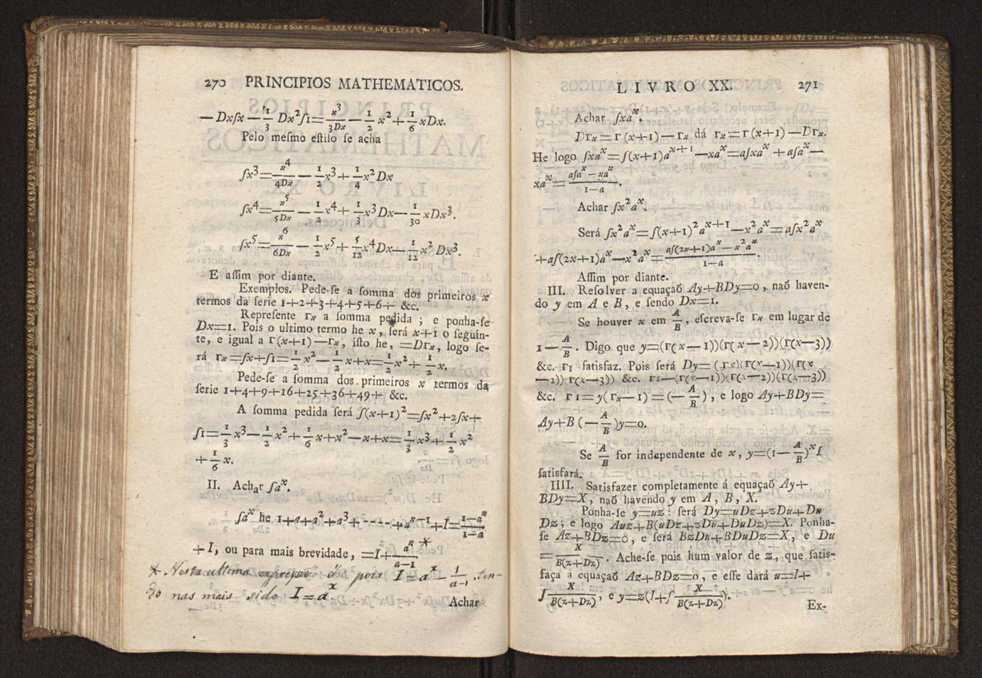 270 PRINCIPIOS MATHEMATICOS.
— Dx∫x — 1/3 Dx²∫1 = x³/3Dx — 1/2 x² + 1/6 xDx.
Pelo meſmo eſtilo ſe acha
∫x³ = x⁴/4Dx — 1/2 x³ + 1/4 x²Dx
∫x⁴ = x⁵/5Dx — 1/2 x⁴ + 1/3 x³Dx — 1/30 xDx³.
∫x⁵ = x⁶/6Dx — 1/2 x⁵ + 5/12 x⁴Dx — 1/12 x²Dx³.
E aſſim por diante.
Exemplos. Pede-ſe a ſomma dos primeiros x
termos da ſerie 1+2+3+4+5+6+ &c.
Repreſente Γx a ſomma pedida ; e ponha-ſe
Dx=1. Pois o ultimo termo he x, ſerá x+1 o ſeguin-
te, e igual a Γ(x+1)—Γx, iſto he, =DΓx, logo ſe-
rá Γx=∫x+∫1= 1/2 x² — 1/2 x+x= 1/2 x² + 1/2 x,
Pede-ſe a ſomma dos primeiros x termos da
ſerie 1+4+9+16+25+36+49+ &c.
A ſomma pedida ſerá ∫(x+1)²=∫x²+2∫x+
∫1= 1/3 x³ — 1/2 x² + 1/6 x+x²—x+x= 1/3 x³ + 1/2 x²
+ 1/6 x.
II. Achar ∫aˣ.
∫aˣ he 1+a+a²+a³+ - - - - +aˣ⁻¹+I= 1—aˣ/1—a
+I, ou para mais brevidade, =I+ aˣ/a—1 *
* Nesta ultima expressaõ é pois I=aˣ — 1/a-1 . ten-
do nas mais sido I=aˣ.
Achar
LIVRO XX. 271
Achar ∫xaˣ.
DΓx=Γ(x+1)—Γx dá Γx=Γ(x+1)—DΓx.
He logo ∫xaˣ=∫(x+1)aˣ⁺¹—xaˣ=a∫xaˣ+a∫aˣ—
xaˣ= a∫aˣ—xaˣ/1—a.
Achar ∫x²aˣ.
Será ∫x²aˣ=∫(x+1)²aˣ⁺¹—x²aˣ=a∫x²aˣ
+a∫(2x+1)aˣ—x²aˣ= a∫(2x+1)aˣ—x²aˣ/1—a.
Aſſim por diante.
III. Reſolver a equaçaõ Ay+BDy=0, naõ haven-
do y em A e B, e ſendo Dx=1.
Se houver x em A/B, eſcreva-ſe Γx em lugar de
1— A/B. Digo que y=(Γ(x—1))(Γ(x—2))(Γ(x—3))
&c. Γ1 ſatisfaz. Pois ſerá Dy=(Γx)(Γ(x—1))(Γ(x
—2))Γ(x—3)) &c. Γ1—(Γ(x—1))(Γ(x—2))(Γ(x—3))
&c. Γ1=y(Γx—1)=(— A/B), e logo Ay+BDy=
Ay+B(— A/B)y=0.
Se A/B for independente de x, y=(1— A/B)ˣI
ſatisfará.
IIII. Satisfazer completamente á equaçaõ Ay+
BDy=X, naõ havendo y em A, B, X.
Ponha-ſe y=uz: ſerá Dy=uDz+zDu+Du
Dz; e logo Auz+B(uDz+zDu+DuDz)=X. Ponha-
ſe Az+BDz=0, e ſerá BzDu+BDuDz=X, e Du
= X/B(z+Dz). Ache-ſe pois hum valor de z, que ſatis-
faça a equaçaõ Az+BDz=0, e eſſe dará u=I+
∫ X/B(z+Dz), e y=z(I+∫ X/B(z+Dz)).
Ex-